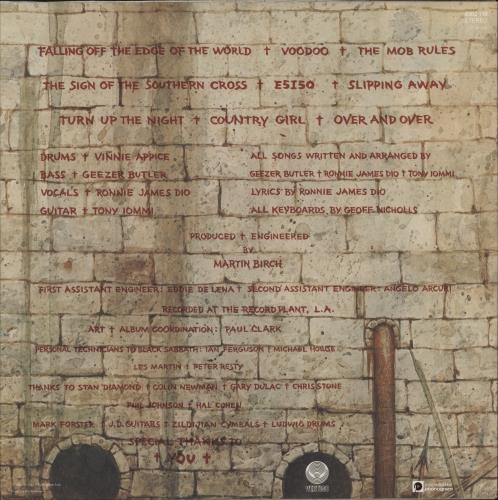 STEREO
FALLING OFF THE EDGE OF THE WORLD † VOODOO † THE MOB RULES
THE SIGN OF THE SOUTHERN CROSS † E5150 † SLIPPING AWAY
TURN UP THE NIGHT † COUNTRY GIRL † OVER AND OVER
DRUMS † VINNIE APPICE
ALL SONGS WRITTEN AND ARRANGED BY
BASS † GEEZER BUTLER
GEEZER BUTLER † RONNIE JAMES DIO † TONY IOMMI
VOCALS † RONNIE JAMES DIO
LYRICS BY RONNIE JAMES DIO
GUITAR † TONY IOMMI
ALL KEYBOARDS BY GEOFF NICHOLLS
PRODUCED † ENGINEERED
BY
MARTIN BIRCH
FIRST ASSISTANT ENGINEER: EDDIE DE LENA † SECOND ASSISTANT ENGINEER: ANGELO ARCURI
RECORDED AT THE RECORD PLANT, L.A.
ART † ALBUM COORDINATION: PAUL CLARK
PERSONAL TECHNICIANS TO BLACK SABBATH: IAN FERGUSON † MICHAEL HOUSE
LES MARTIN † PETER RESTY
THANKS TO STAN DIAMOND † COLIN NEWMAN † GARY DULAC † CHRIS STONE
PHIL JOHNSON † HAL COHEN
MARK FORSTER † J.D. GUITARS † ZILDJIAN CYMBALS † LUDWIG DRUMS
SPECIAL THANKS TO
† YOU †
VERTIGO
phonogram